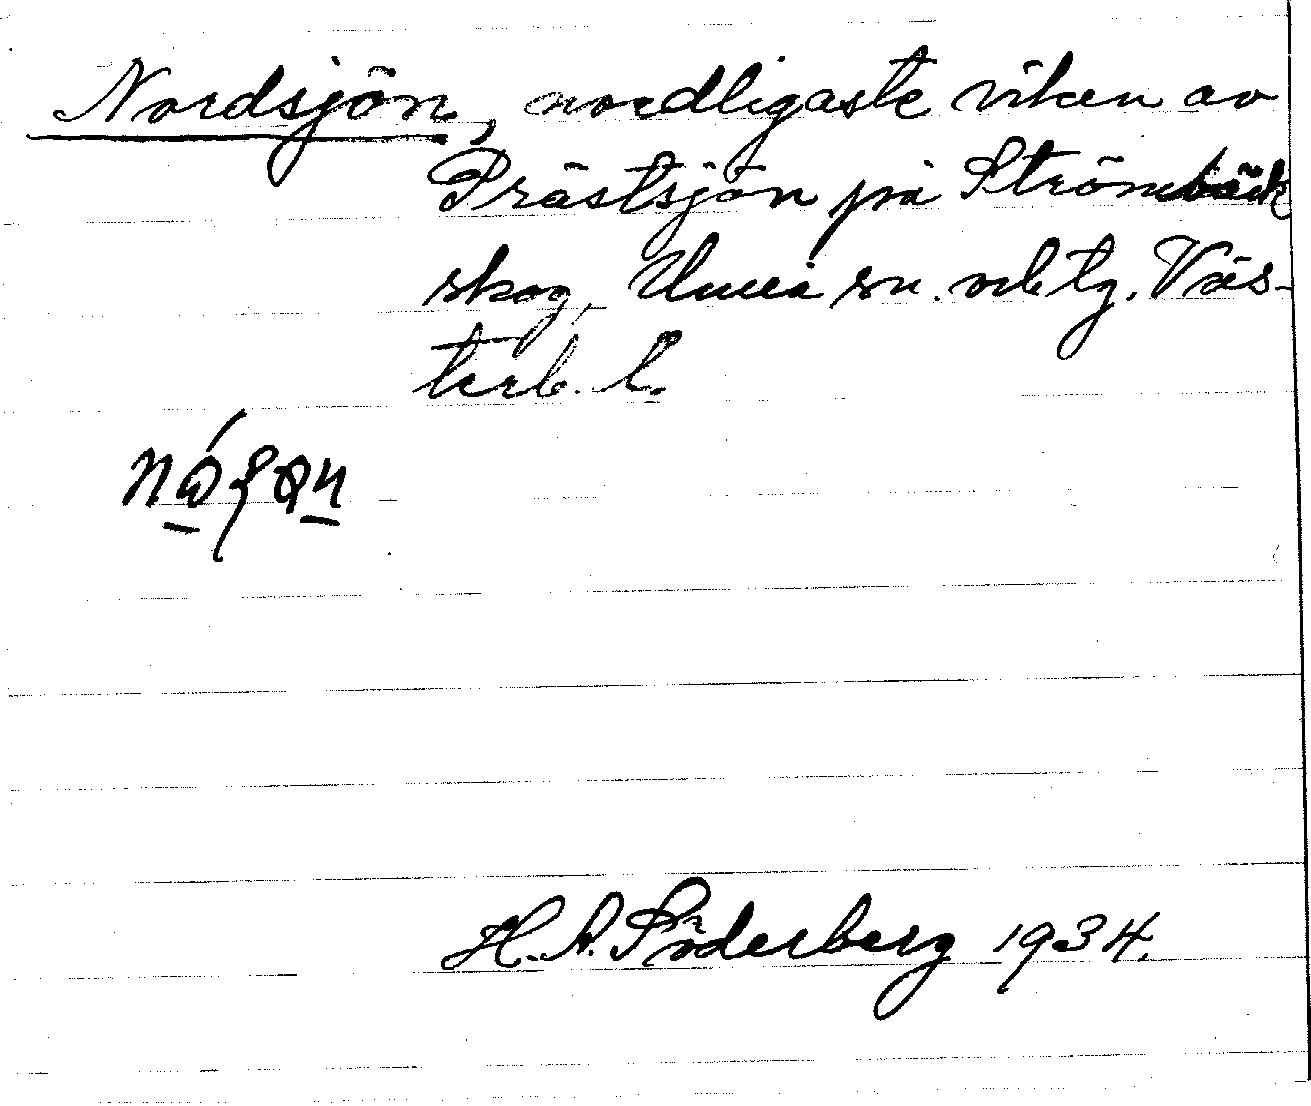 Nordsjön, nordligaste viken av
Prästsjön på Strömbäck
skog, Umeå sn. o. lltg. Väs-
terb. l.
H. A. Söderberg 1934.